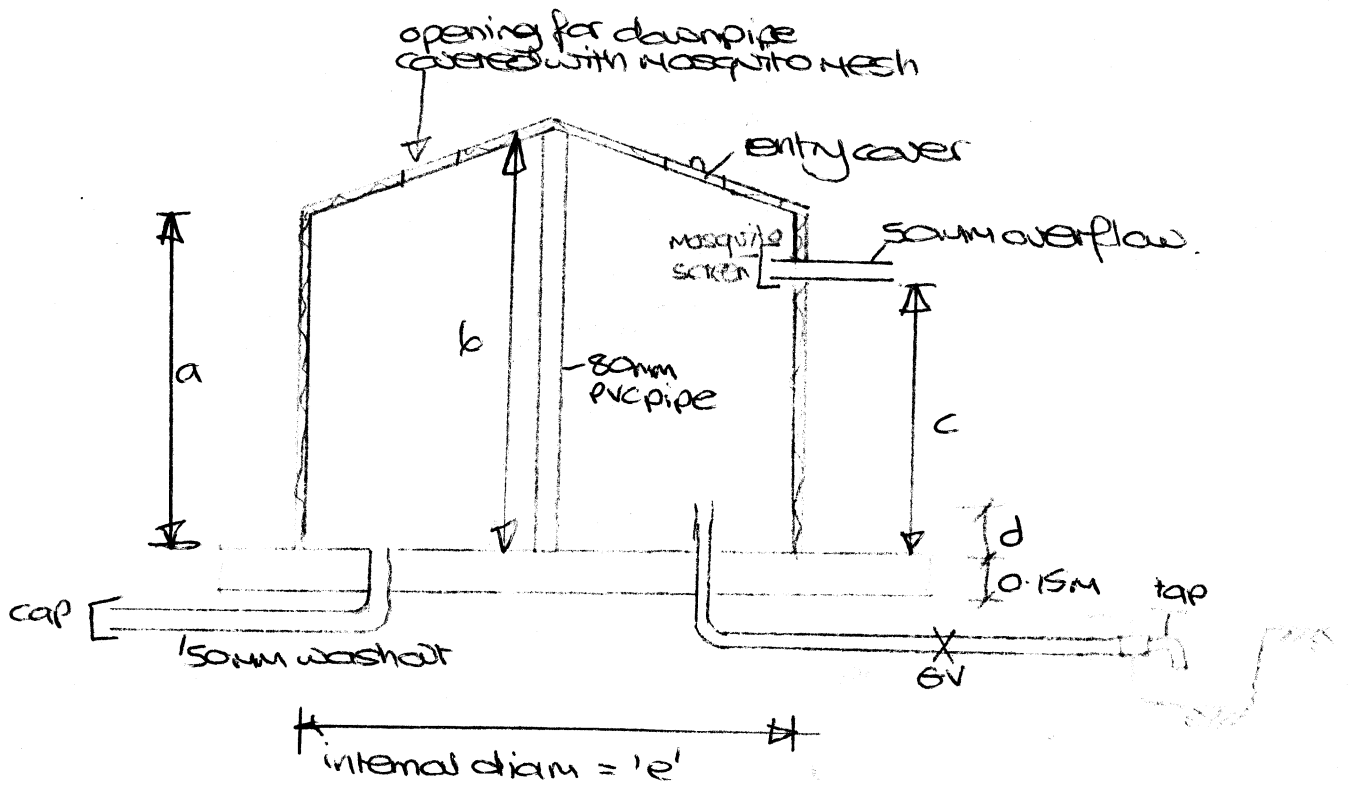 opening for downpipe
covered with mosquito mesh
entry cover
mosquito
screen
50mm overflow.
a
b
80mm
PVC pipe
c
d
0.15m
tap
cap
50mm washout
GV
internal diam = 'e'